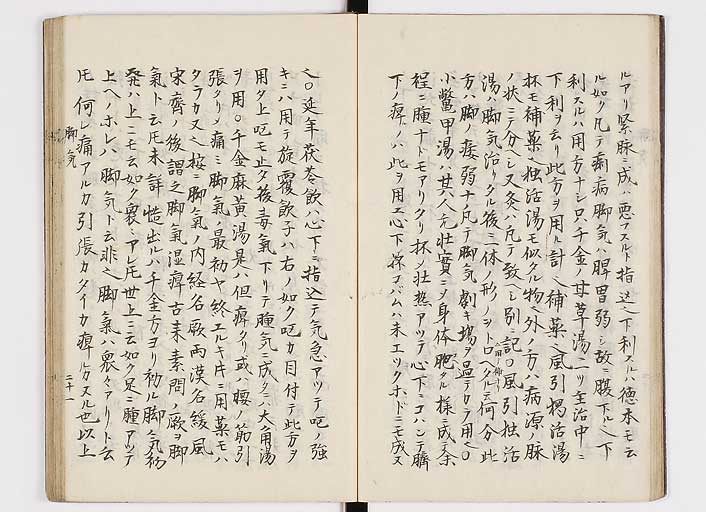 ルアリ緊脉ニ成ハ悪フスルト指込ミ下利スルハ徳本モ云
ル如ク凡テ痢病脚気ハ脾胃弱シ故ニ腹下ル下
利スルハ用方ナシ只千金ノ甘草湯一ツ主治中ニ
下利ヲ云リ此方ヲ用ル計ヘ補薬ヘ風引独活湯
杯モ補薬独活湯モ似タル物ヘ外ノ方ハ病源ノ脉
ノ状ニ分ヘシ又灸ハ凡テ致ヘシ別ニ記〇風引独活
湯ハ脚気治リタル後ニ体ノ形ノヲトロヘタルニ何分此
方ハ脚ノ痿弱ナ凡テ脚気劇キ場ヲ過テカラ用〇
小鱉甲湯ハ其人元壮實ニメ身体肥タル様ニ成テ余
程ニ腫ナドモアリクリ杯ノ壮熱アツテ心下ニコハンテ臍
下ノ痺ハ此ヲ用エ心下押フバムハ未エツクホドニモ成又
〇延年茯苓飲ハ心下ニ指込テ気急アツテ吧ノ強
キニハ用テ旋覆飲子ハ右ノ如ク吧カ目付テ此方ヲ
用タ上吧モ止タ後毒気下リテ腫気ニ成タニ大角湯
ヲ用〇千金麻黄湯是ハ但痺タリ或ハ腰ノ筋引
張タリメ痛ミ脚気ノ最初ヤ終エルキ片ニ用薬モハ
タラカ又ヘ按ニ脚気ノ内経名厥両漢名緩風
宋齊ノ後謂之脚氣湿痺古来素問ノ厥ヲ脚
氣ト云氏未詳慥出ルハ千金方ヨリ初ル脚気初
発ハ上ニモ云如ク衆アレ氏世上ニ云如ク足ニ腫アツテ
上ヘノホレハ脚気ト云非之脚氣ハ衆々アリト云
氏何レ痛アルカ引張カタイカ痺ルカスル也以上
脚気
二十一